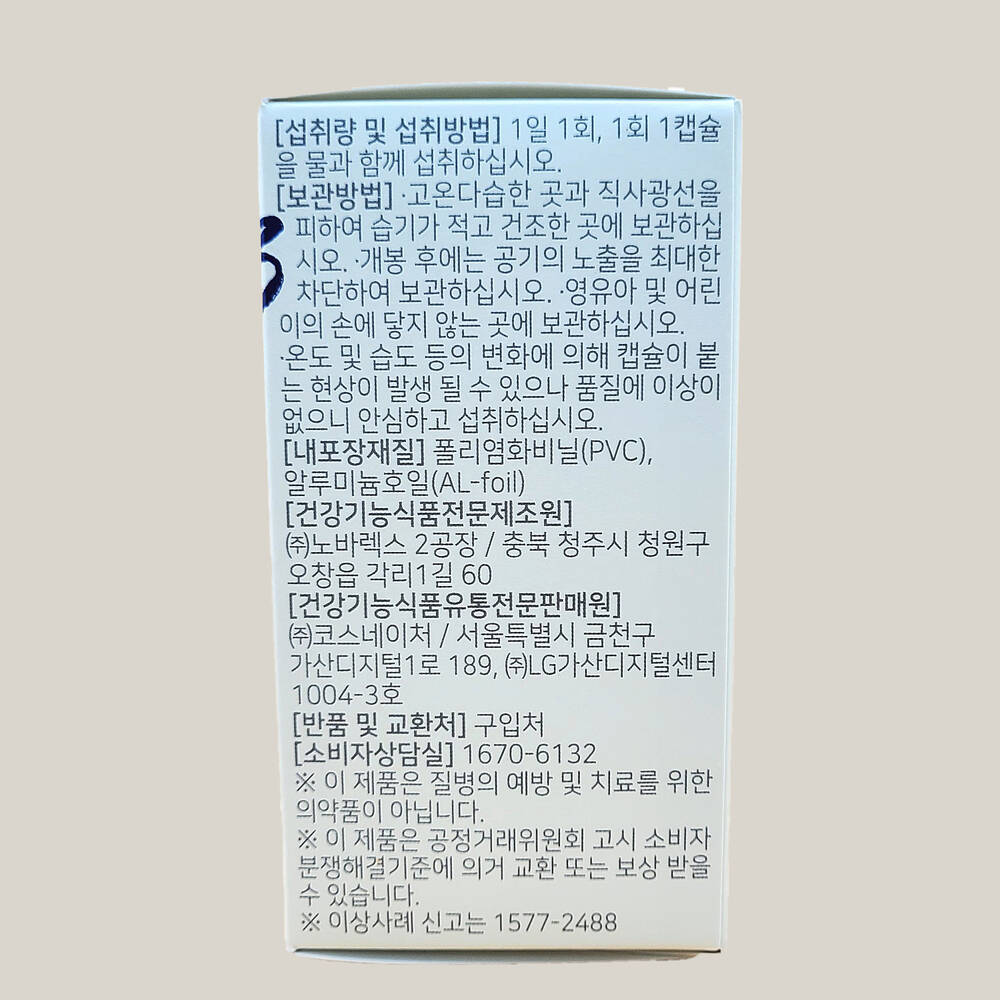 [섭취량 및 섭취방법] 1일 1회, 1회 1캡슐
을 물과 함께 섭취하십시오.
[보관방법] ·고온다습한 곳과 직사광선을
피하여 습기가 적고 건조한 곳에 보관하십
시오. ·개봉 후에는 공기의 노출을 최대한
차단하여 보관하십시오. ·영유아 및 어린
이의 손에 닿지 않는 곳에 보관하십시오.
·온도 및 습도 등의 변화에 의해 캡슐이 붙
는 현상이 발생 될 수 있으나 품질에 이상이
없으니 안심하고 섭취하십시오.
[내포장재질] 폴리염화비닐(PVC),
알루미늄호일(AL-foil)
[건강기능식품전문제조원]
㈜노바렉스 2공장 / 충북 청주시 청원구
오창읍 각리1길 60
[건강기능식품유통전문판매원]
㈜코스네이처 / 서울특별시 금천구
가산디지털1로 189, ㈜LG가산디지털센터
1004-3호
[반품 및 교환처] 구입처
[소비자상담실] 1670-6132
※ 이 제품은 질병의 예방 및 치료를 위한
의약품이 아닙니다.
※ 이 제품은 공정거래위원회 고시 소비자
분쟁해결기준에 의거 교환 또는 보상 받을
수 있습니다.
※ 이상사례 신고는 1577-2488